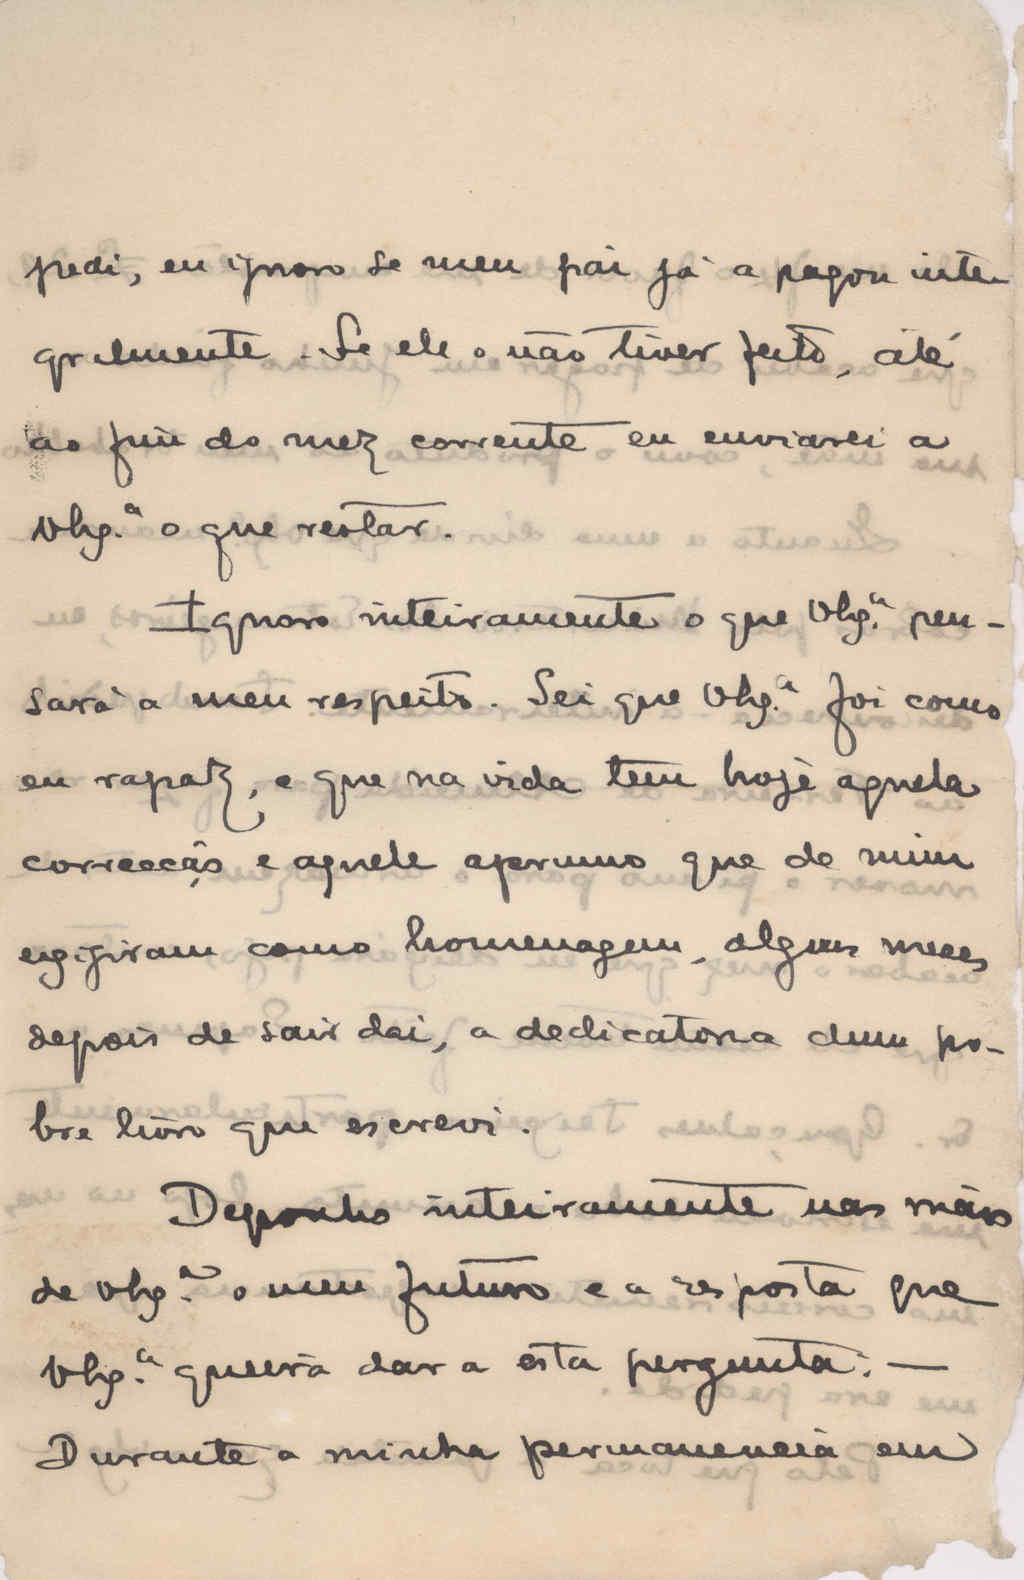 pedi, eu ignoro se meu pai já a pagou inte-
gralmente. Se ele o não tiver feito, até
ao fim do mez corrente eu enviarei a
o que restar.
Ignoro inteiramente o que pen-
sará a meu respeito. Sei que foi como
eu rapaz, e que na vida tem hoje aquela
correcção e aquele aprumo que de mim
exigiram como homenagem, alguns mezes
depois de sair dai, a dedicatoria dum po-
bre livro que escrevi.
Deponho inteiramente nas mãos
de o meu futuro e a resposta que
queira dar a esta pergunta: —
Durante a minha permanencia em